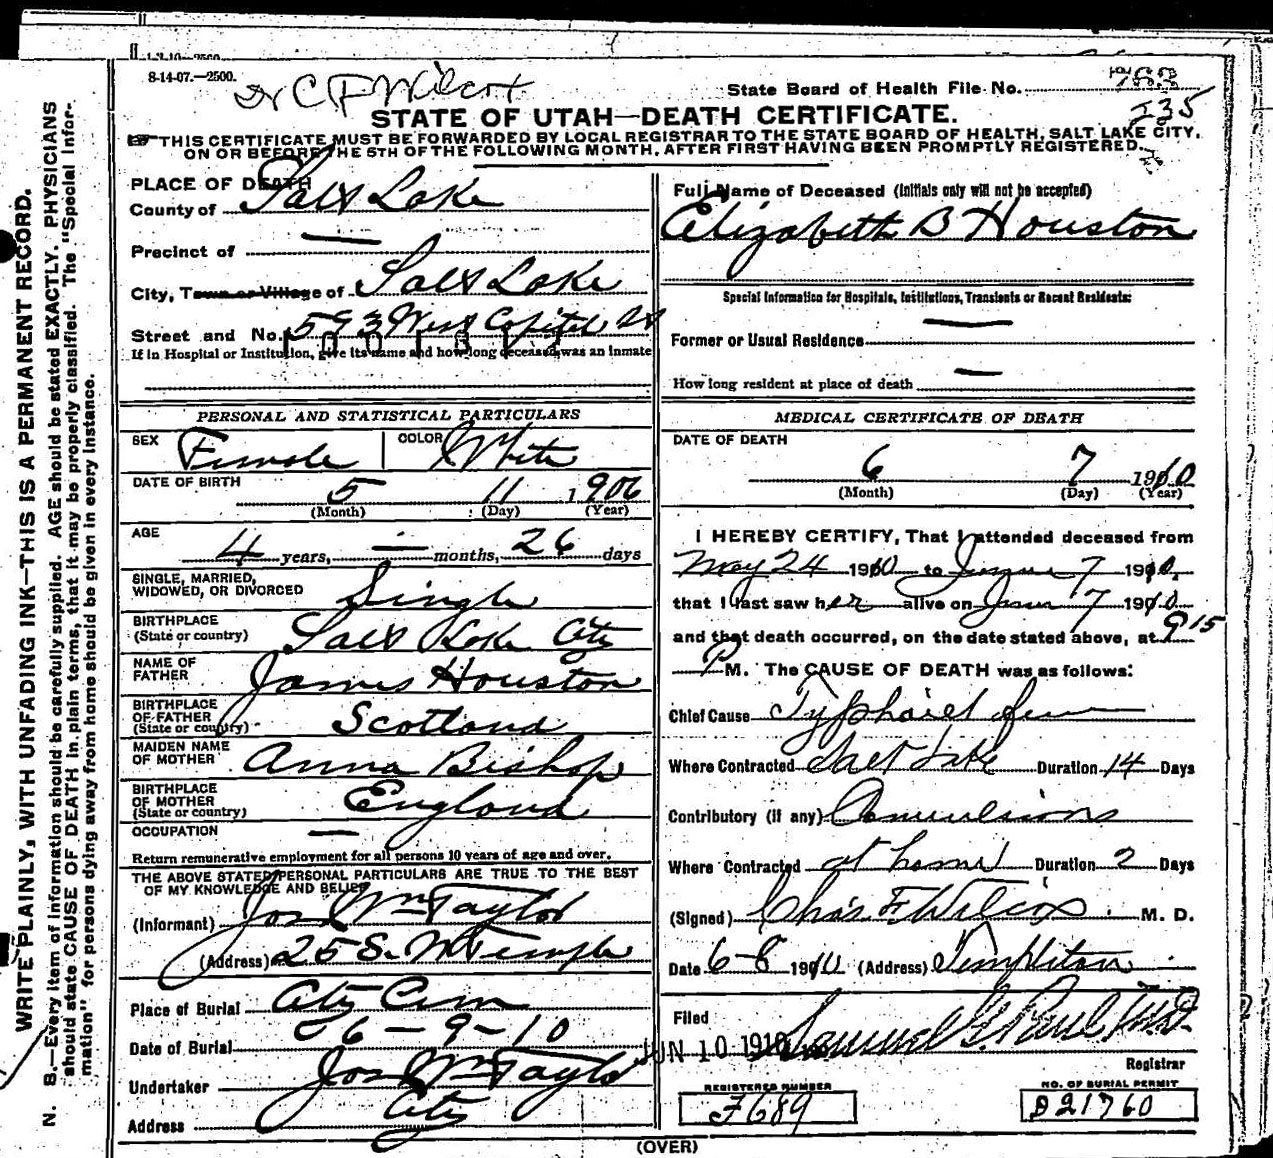 8-14-07.—2500.
Dr C F Wilcox
State Board of Health File No. 763
235
STATE OF UTAH—DEATH CERTIFICATE.
THIS CERTIFICATE MUST BE FORWARDED BY LOCAL REGISTRAR TO THE STATE BOARD OF HEALTH, SALT LAKE CITY,
ON OR BEFORE THE 5TH OF THE FOLLOWING MONTH, AFTER FIRST HAVING BEEN PROMPTLY REGISTERED.
WRITE PLAINLY, WITH UNFADING INK—THIS IS A PERMANENT RECORD.
N. B.—Every item of information should be carefully supplied. AGE should be stated EXACTLY. PHYSICIANS
should state CAUSE OF DEATH in plain terms, that it may be properly classified. The "Special Infor-
mation" for persons dying away from home should be given in every instance.
PLACE OF DEATH
County of Salt Lake
Precinct of —
City, Town or Village of Salt Lake
Street and No. 593 West Capitol St
If in Hospital or Institution, give its name and how long deceased was an inmate
PERSONAL AND STATISTICAL PARTICULARS
SEX Female COLOR White
DATE OF BIRTH 5 11 1906
(Month) (Day) (Year)
AGE 4 years, — months, 26 days
SINGLE, MARRIED,
WIDOWED, OR DIVORCED Single
BIRTHPLACE
(State or country) Salt Lake City
NAME OF
FATHER James Houston
BIRTHPLACE
OF FATHER
(State or country) Scotland
MAIDEN NAME
OF MOTHER Anna Bishop
BIRTHPLACE
OF MOTHER
(State or country) England
OCCUPATION —
Return remunerative employment for all persons 10 years of age and over.
THE ABOVE STATED PERSONAL PARTICULARS ARE TRUE TO THE BEST
OF MY KNOWLEDGE AND BELIEF
(Informant) Jos Wm Taylor
(Address) 25 S. W Temple
Place of Burial City Cem
Date of Burial 6-9-10
Undertaker Jos Wm Taylor
Address City
Full Name of Deceased (Initials only will not be accepted)
Elizabeth B Houston
Special Information for Hospitals, Institutions, Transients or Recent Residents:
Former or Usual Residence —
How long resident at place of death —
MEDICAL CERTIFICATE OF DEATH
DATE OF DEATH
6 7 1910
(Month) (Day) (Year)
I HEREBY CERTIFY, That I attended deceased from
May 24 1910 to June 7 1910,
that I last saw her alive on June 7 1910
and that death occurred, on the date stated above, at 9 15
P M. The CAUSE OF DEATH was as follows:
Chief Cause Typhoid fever
Where Contracted Salt Lake Duration 14 Days
Contributory (if any) Convulsions
Where Contracted at home Duration 2 Days
(Signed) Chas. F. Wilcox. M. D.
Date 6-8 1910 (Address) Templeton
Filed
JUN 10 1910 Samuel G. Paul M.D.
Registrar
REGISTERED NUMBER
F689
NO. OF BURIAL PERMIT
D21760
(OVER)